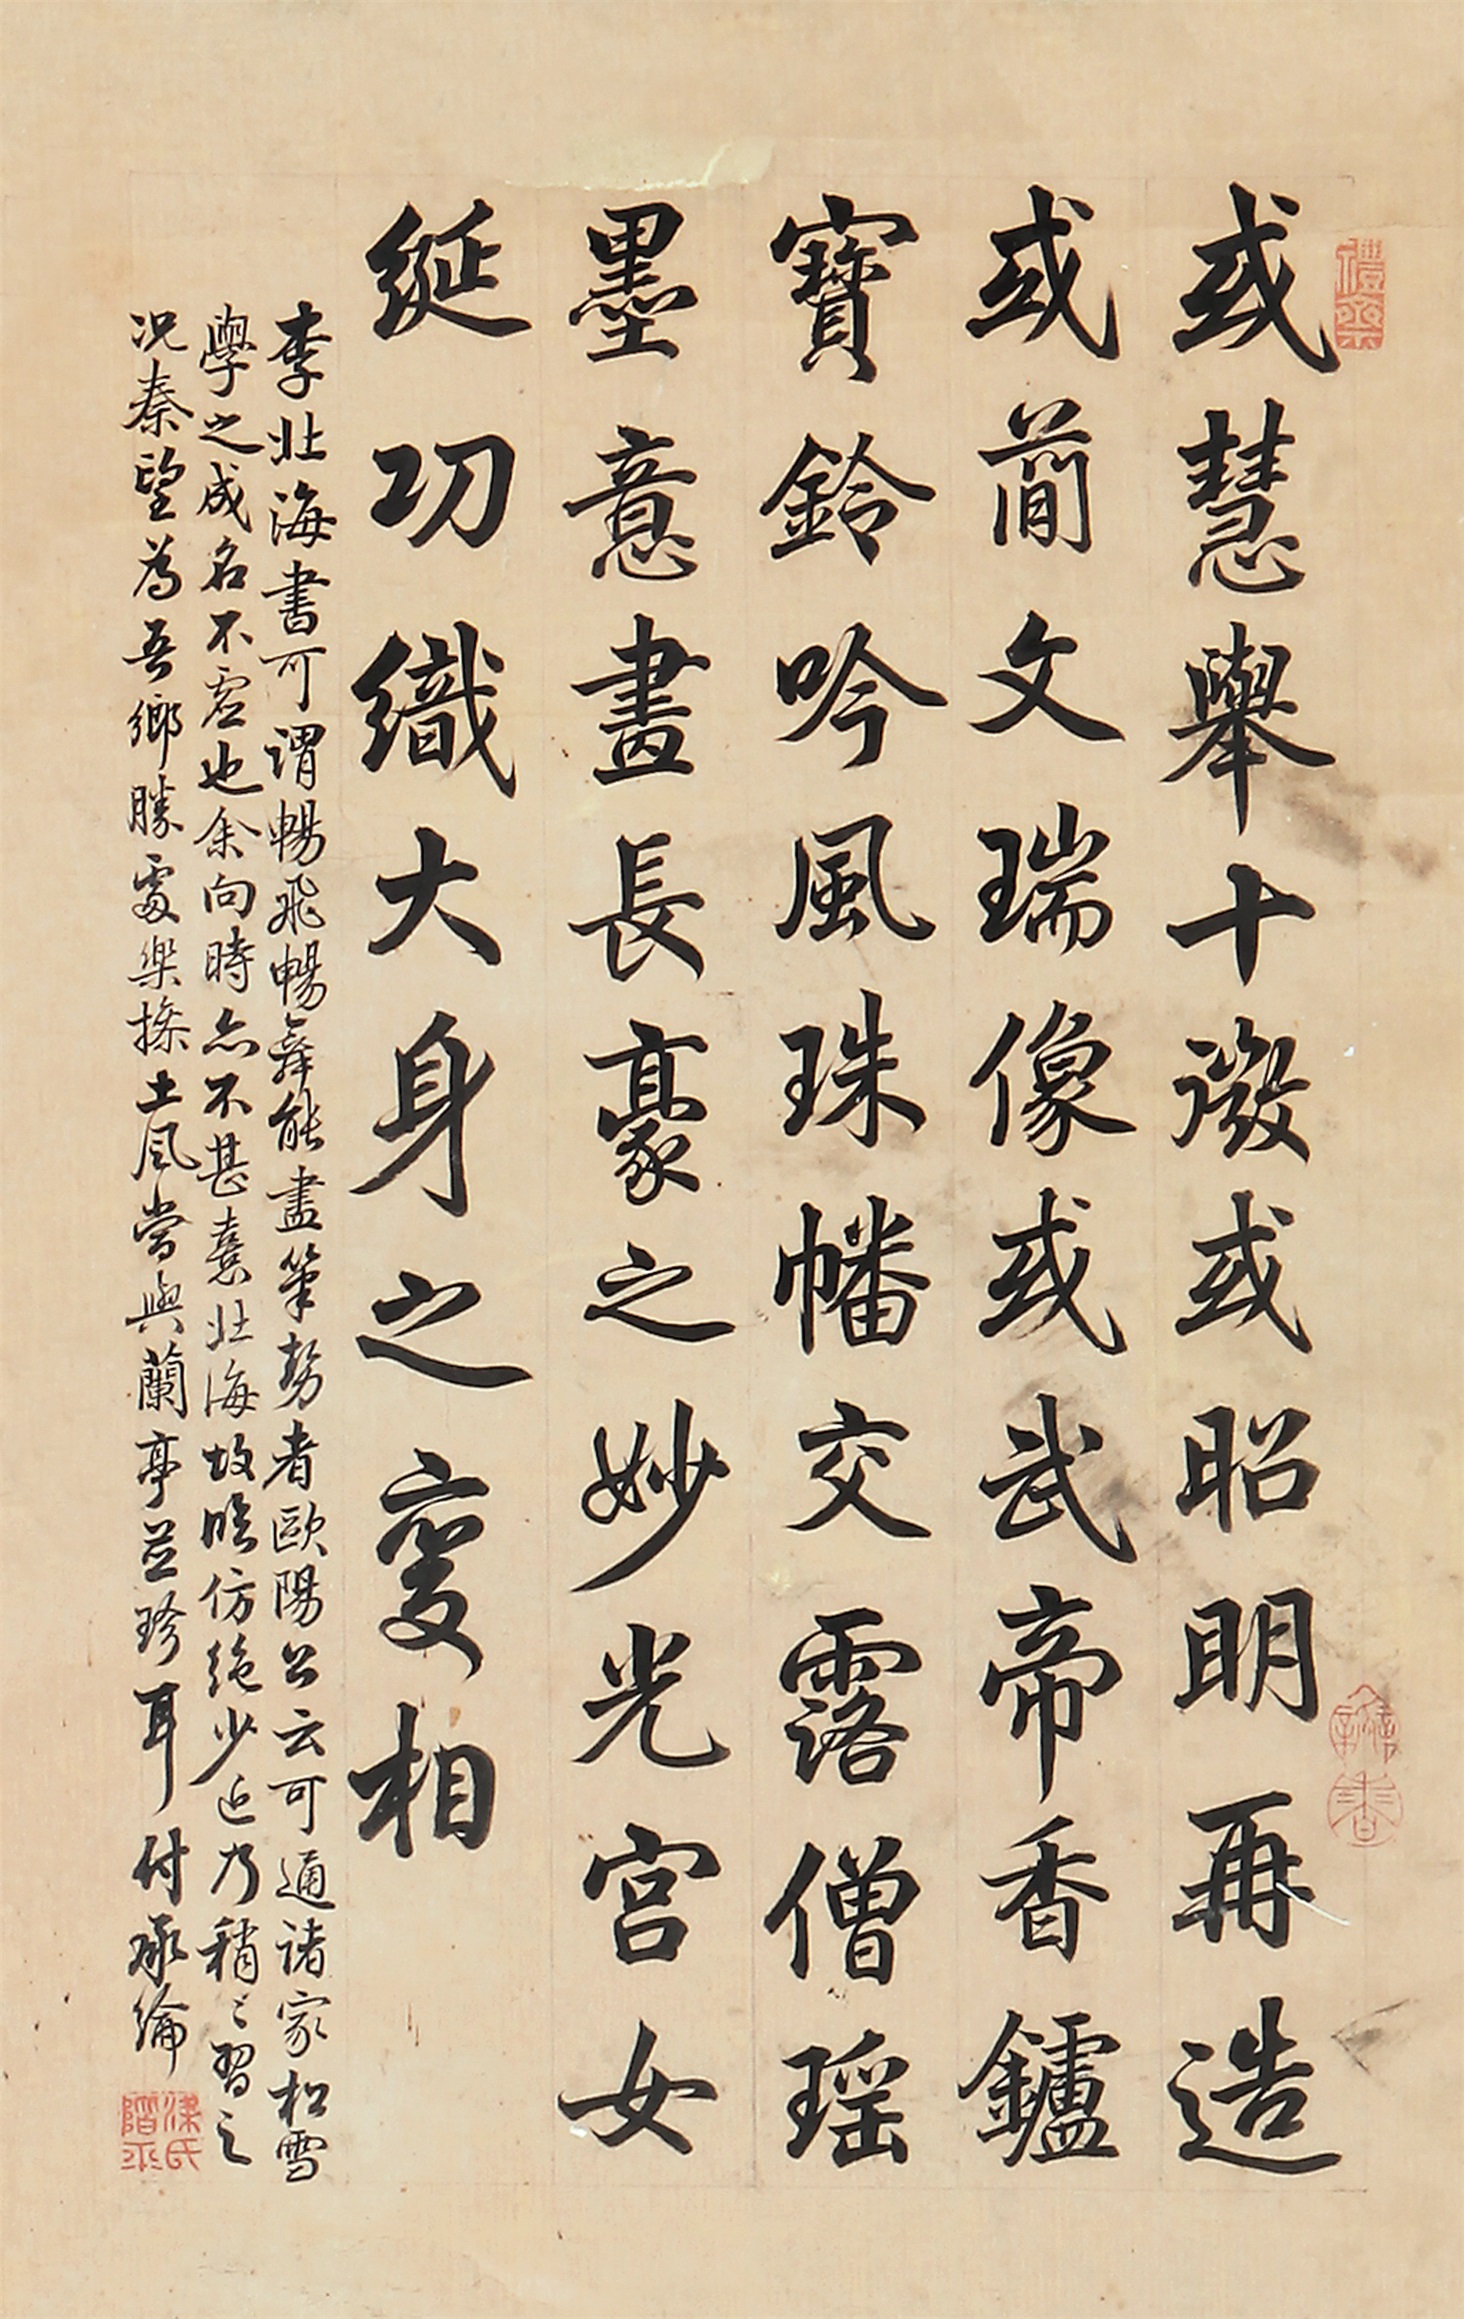 或慧舉十徵或昭明再造
或蕳文瑞像或武帝香鑪
寶鈴吟風珠幡交露僧瑶
墨意畫長豪之妙光宫女
綖功織大身之變相
李北海書可謂暢飛暢舞能盡筆勢者歐陽公云可通諸家松雪
學之成名不虛也余向時亦不甚憙北海故臨仿絶少近乃稍〻習之
况秦望為吾鄉勝處樂操土風當與蘭亭並珍耳付承綸
禮樂
梁氏